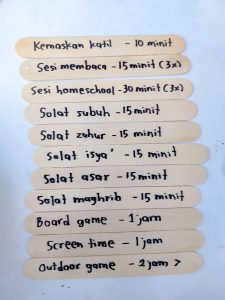 Kemaskan katil - 10 minit
Sesi membaca - 15 minit (3x)
Sesi homeschool - 30 minit (3x)
Solat subuh - 15 minit
Solat zuhur - 15 minit
Solat isya' - 15 minit
Solat asar - 15 minit
Solat maghrib - 15 minit
Board game - 1 jam
Screen time - 1 jam
Outdoor game - 2 jam >